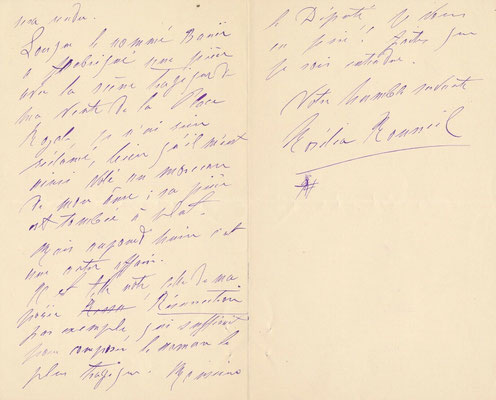 sera rendu.
Lorsque le nommé
a fabriqué une pièce
avec la scène tragique de
ma vente de la Place
Royale je n'ai rien
réclamé, bien qu'il m'eut
ainsi volé un morceau
de mon âme ; sa pièce
est tombée à plat.
Mais aujourd'hui c'est
une autre affaire.
et telle note de ma
poésie Résurrection
par exemple, qui suffirait
pour composer le roman le
plus tragique. Monsieur
le Député je vous
en prie ! faites que
je sois entendue.
Votre humble servante
Rosélia Rousseil